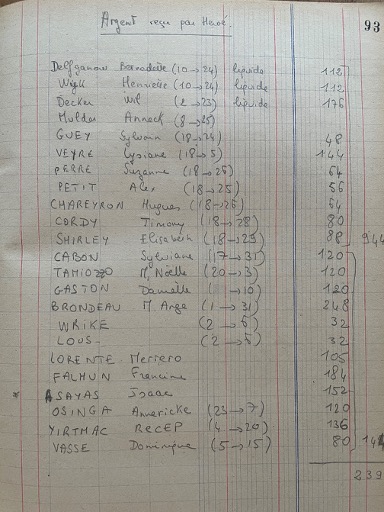 Argent reçu par Hervé.
93
Delfganow Bernadette (10→24) liquide 112
Wijk Henriette (10→24) liquide 112
Decker Wil (2→23) liquide 176
Mulder Anneck (8→25)
GUEY Sylvain (18→24) 48
VEYRE Lysiane (18→5) 144
PERRE Suzanne (18→26) 64
PETIT Alex (18→25) 56
CHAREYRON Hugues (18→26) 64
CORDY Timony (18→28) 80
SHIRLEY Elisabeth (18→29) 88 944
CABON Sylviane (17→31) 120
TAMIOZZO M. Noëlle (20→3) 120
GASTON Danielle (→10) 120
BRONDEAU M. Ange (1→31) 248
WRIKE (2→6) 32
LOUS (2→6) 32
LORENTE Herrero 105
FALHUN Francine 184
* SAYAS Isaac 152
OSINGA Annericke (23→7) 120
YIRTMAC RECEP (4→20) 136
VASSE Dominique (5→15) 80
239